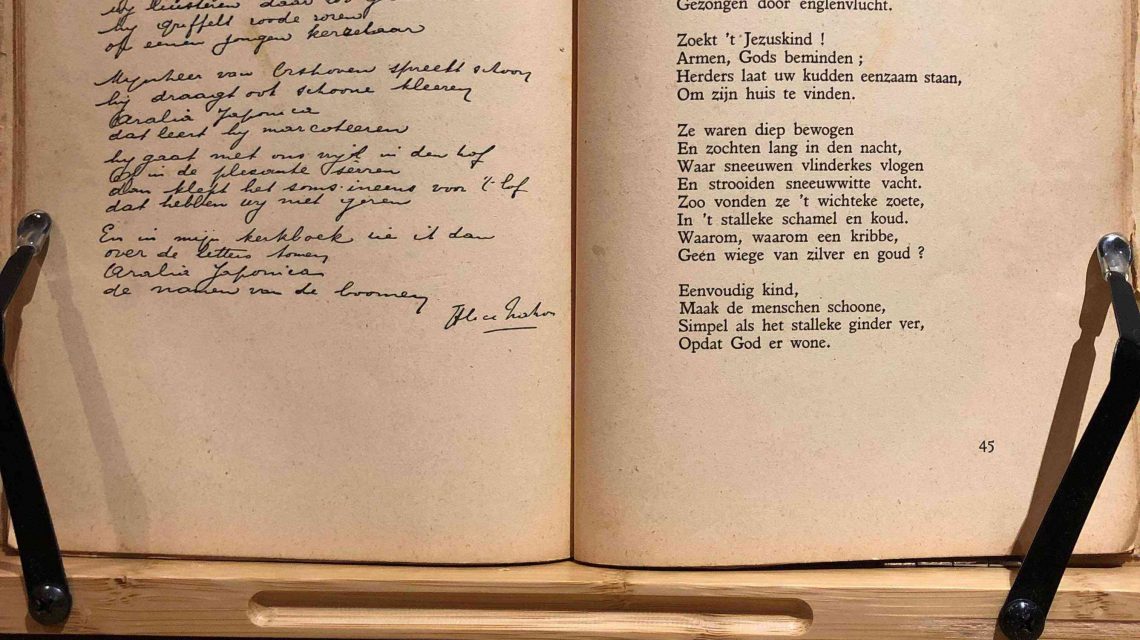 wy luisteren daar
hy griffelt roode rozen
op eenen jongen kerzelaar
Mynheer van Orshoven spreekt schoon
hy draagt ook schoone kleeren
Aralia Japonica
dat leert hy marcoteeren
hy gaat met ons wyd in den hof
in de plesante serren
dan klept het soms ineens voor 't lof
dat hebben wy niet geren
En in mijn kerkboek zie ik dan
over de letters komen
Aralia Japonica
de namen van de boomen
Alice Nahon
Gezongen door englenvlucht.
Zoekt 't Jezuskind !
Armen, Gods beminden ;
Herders laat uw kudden eenzaam staan,
Om zijn huis te vinden.
Ze waren diep bewogen
En zochten lang in den nacht,
Waar sneeuwen vlinderkes vlogen
En strooiden sneeuwwitte vacht.
Zoo vonden ze 't wichteke zoete,
In 't stalleke schamel en koud.
Waarom, waarom een kribbe,
Geen wiege van zilver en goud ?
Eenvoudig kind,
Maak de menschen schoone,
Simpel als het stalleke ginder ver,
Opdat God er wone.
45